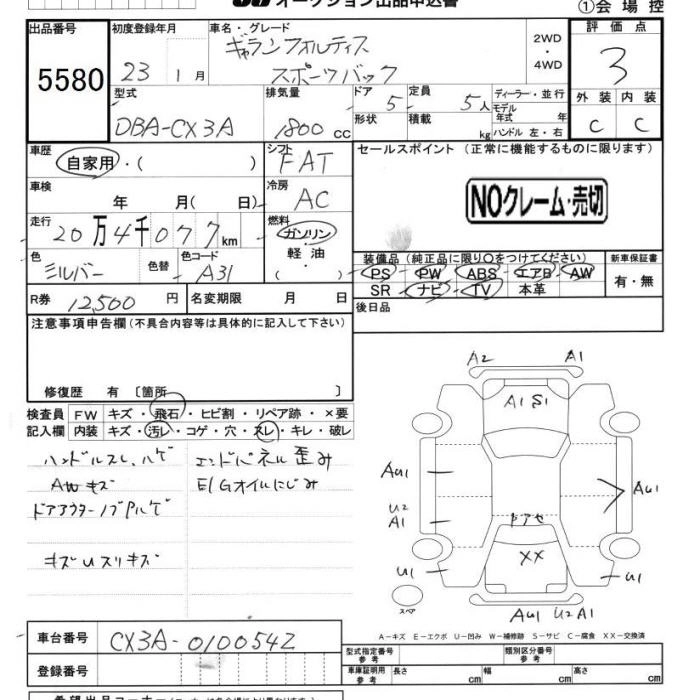 オークション出品申込書
①会場控
出品番号
5580
初度登録年月
23 1月
車名・グレード
ギャランフォルティス
スポーツバック
2WD
・
4WD
評価点
3
外装 内装
C C
型式
DBA-CX3A
排気量
1800 cc
ドア 5
定員 5人
形状
積載 kg
ディーラー・並行
モデル年式 年
ハンドル 左・右
車歴
自家用・( )
シフト
FAT
車検
年 月( 日)
冷房
AC
走行
20万4千077km
燃料
ガソリン
軽油
( )
色
シルバー
色替
色コード
A31
R券 12,500 円
名変期限 月 日
セールスポイント (正常に機能するものに限ります)
NOクレーム・売切
装備品 (純正品に限り○をつけてください)
PS PW ABS エアB AW
SR ナビ TV 本革
新車保証書
有・無
後日品
注意事項申告欄 (不具合内容等は具体的に記入して下さい)
修復歴 有 〔箇所 〕
検査員 FW キズ・飛石・ヒビ割・リペア跡・×要
記入欄 内装 キズ・汚レ・コゲ・穴・スレ・キレ・破レ
ハンドルスレ、ハゲ
エンドパネル歪み
AWキズ
E/Gオイルにじみ
ドアアウターノブPハゲ
キズUスリキズ
A2 A1
A1 S1
AU1
U2
A1
AU1
ドアセ
XX
U1
U1
スペア
AU1 U2 A1
A-キズ E-エクボ U-凹み W-補修跡 S-サビ C-腐食 XX-交換済
車台番号
CX3A-0100542
登録番号
型式指定番号
参考
類別区分番号
参考
車庫証明用
参考
長さ cm
幅 cm
高さ cm
希望出品コーナー